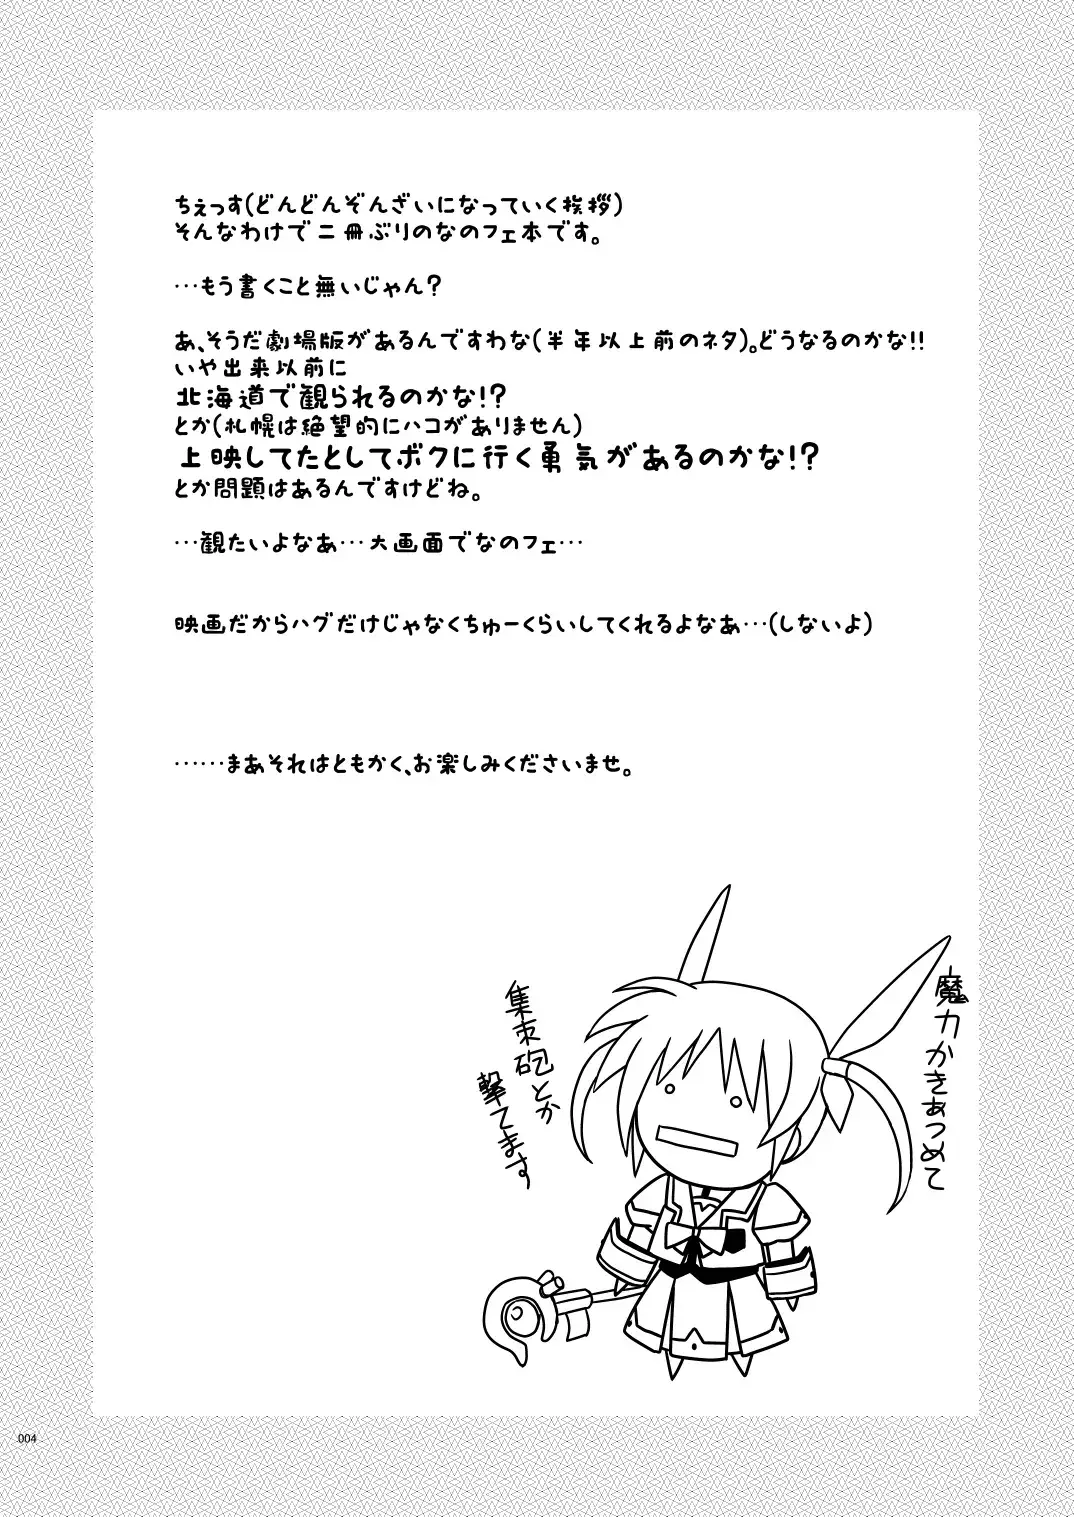 ちぇっす(どんどんぞんざいになっていく挨拶)
そんなわけで二冊ぶりのなのフェ本です。
…もう書くこと無いじゃん?
あ、そうだ劇場版があるんですわな(半年以上前のネタ)。どうなるのかな!!
いや出来以前に
北海道で観られるのかな!?
とか(札幌は絶望的にハコがありません)
上映してたとしてボクに行く勇気があるのかな!?
とか問題はあるんですけどね。
…観たいよなあ…大画面でなのフェ…
映画だからハグだけじゃなくちゅーくらいしてくれるよなあ…(しないよ)
……まあそれはともかく、お楽しみくださいませ。
魔力かきあつめて
集束砲とか
撃てます
004